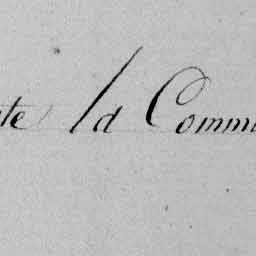 te ld Comm